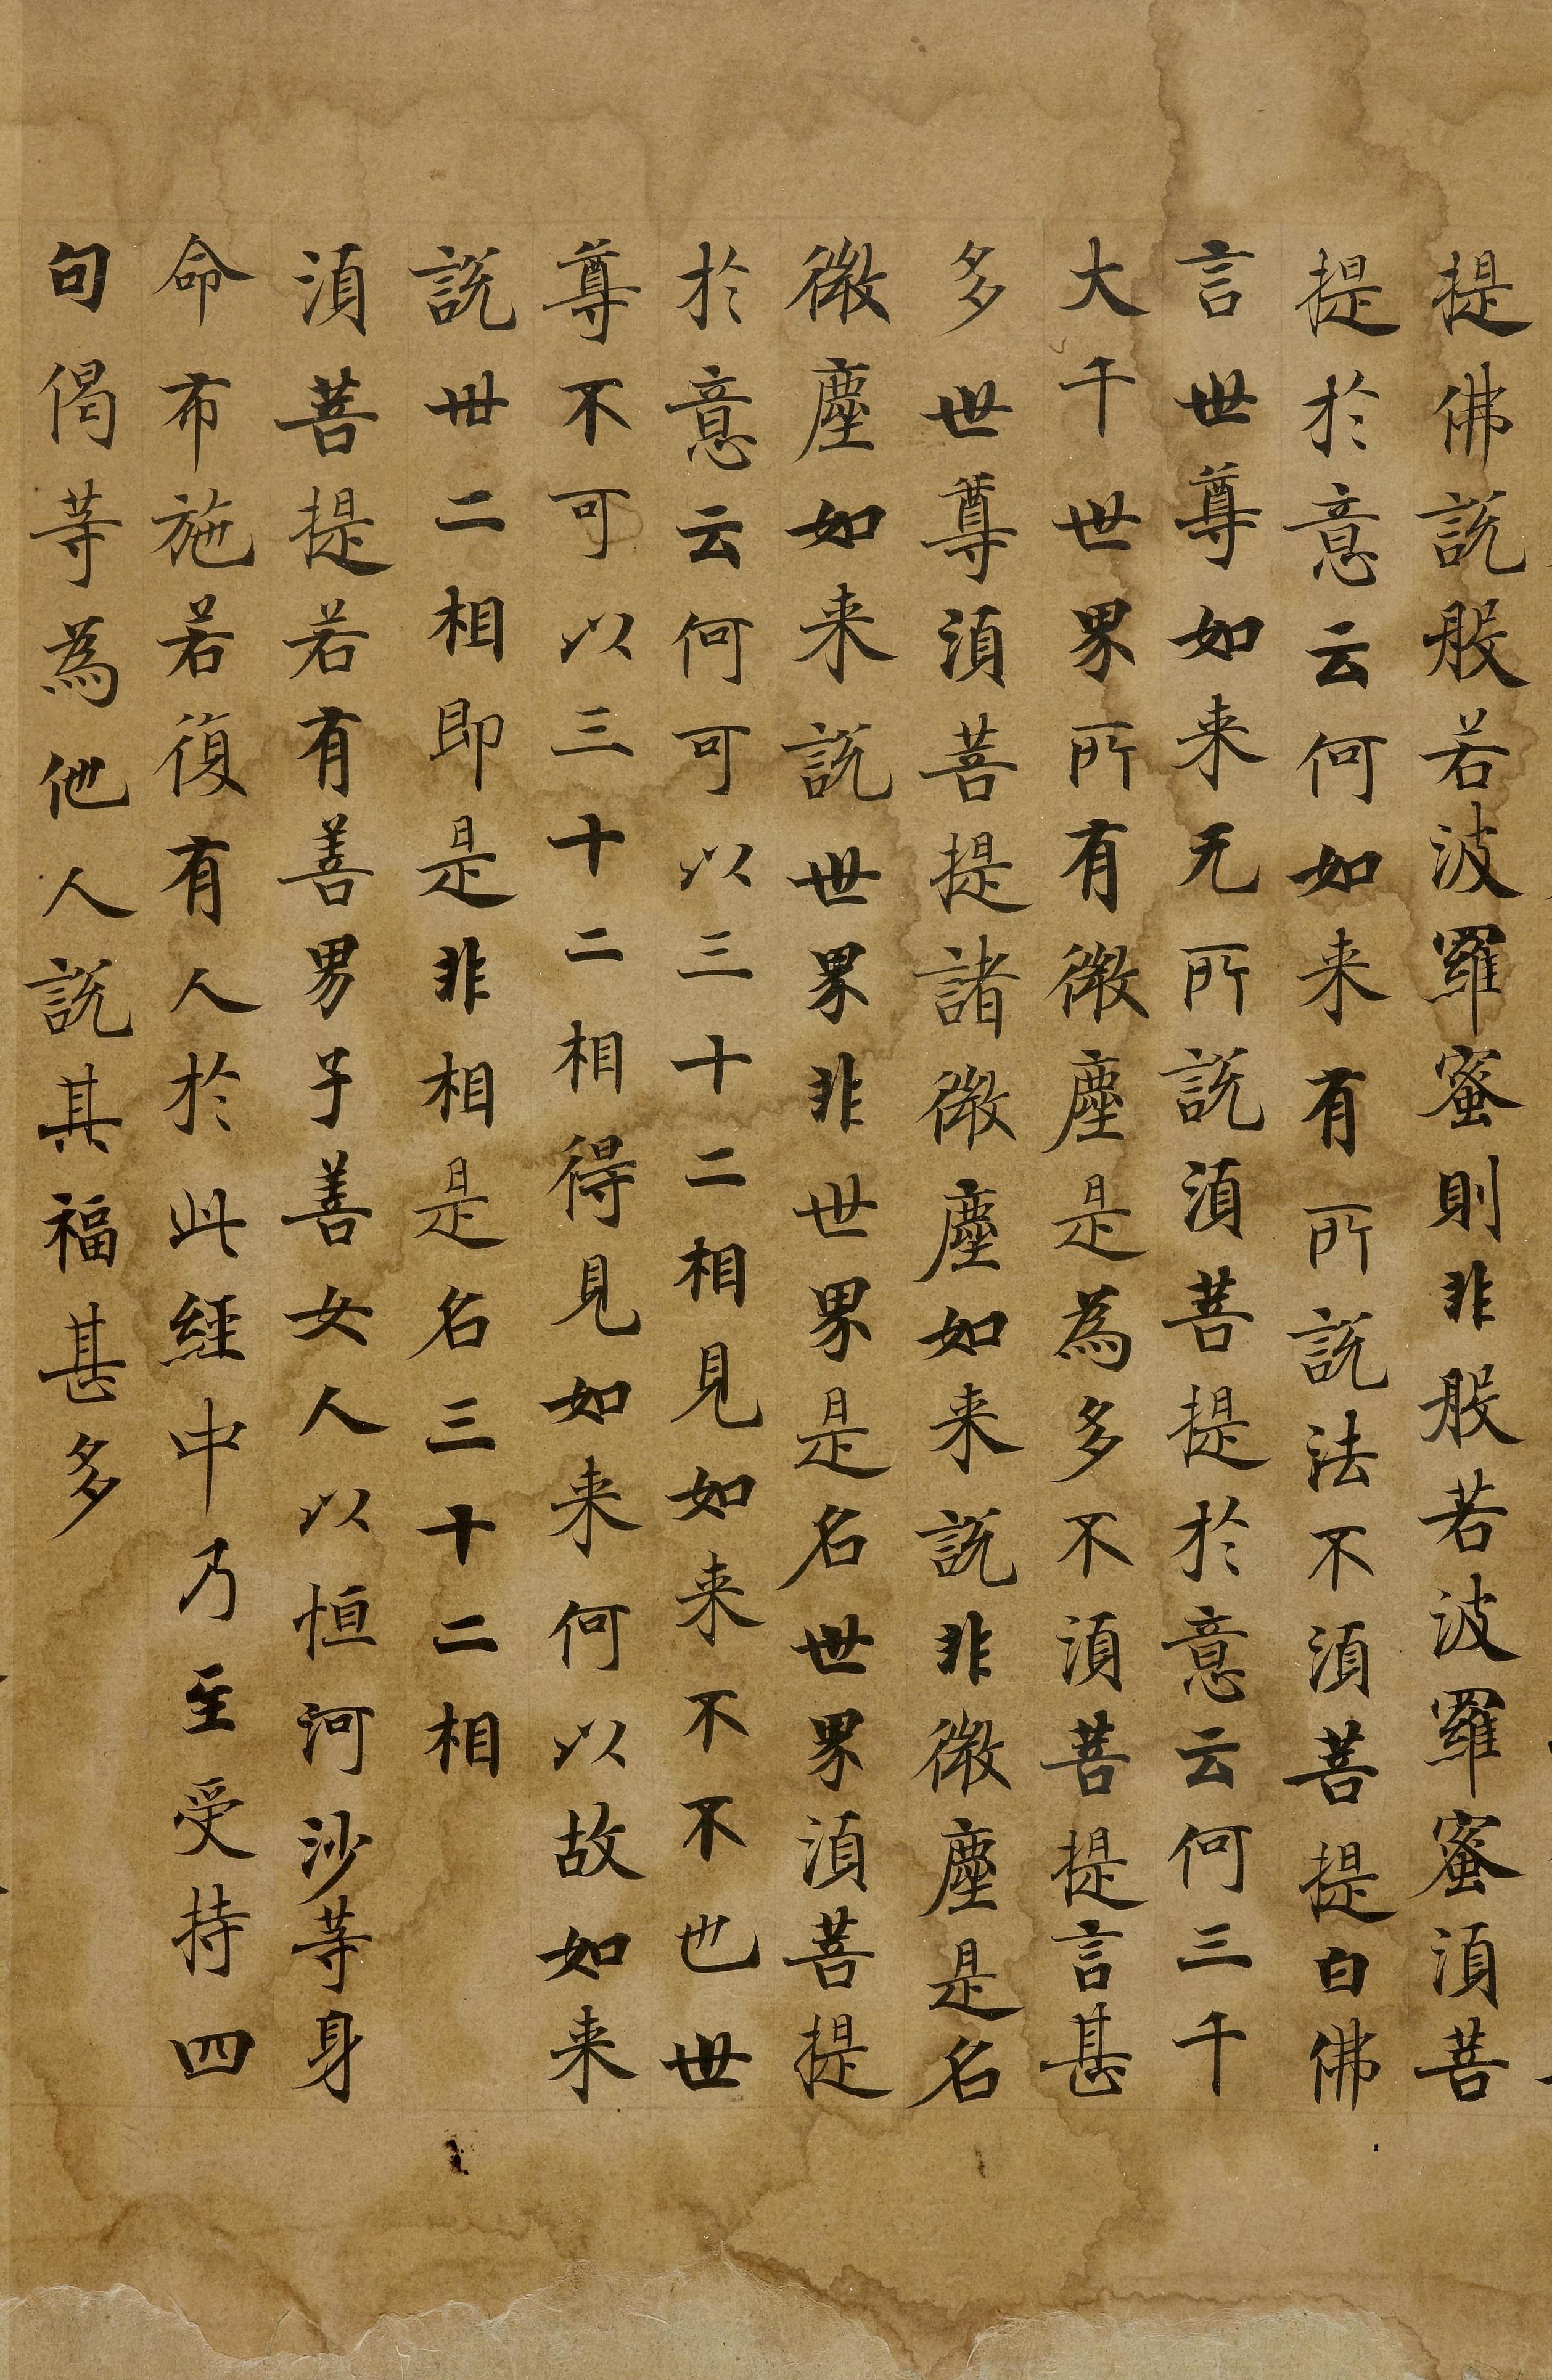 提佛說般若波羅蜜則非般若波羅蜜須菩
提於意云何如来有所說法不須菩提白佛
言世尊如来无所說須菩提於意云何三千
大千世界所有微塵是為多不須菩提言甚
多世尊須菩提諸微塵如来說非微塵是名
微塵如来說世界非世界是名世界須菩提
於意云何可以三十二相見如来不不也世
尊不可以三十二相得見如来何以故如来
說卅二相即是非相是名三十二相
須菩提若有善男子善女人以恒河沙等身
命布施若復有人於此經中乃至受持四
句偈等為他人說其福甚多